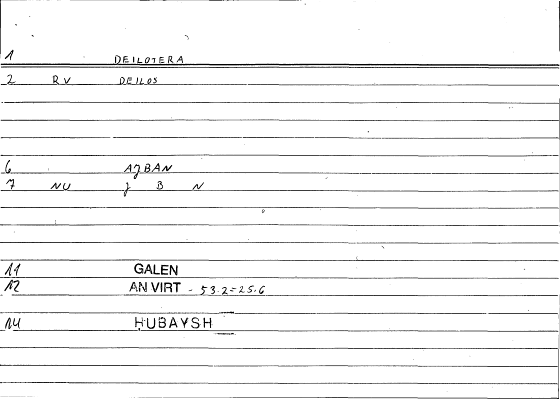 1 DEILOTERA
2 RV DEILOS
6 AJBAN
7 NU J B N
11 GALEN
12 AN VIRT - 53.2=25.6
14 HUBAYSH